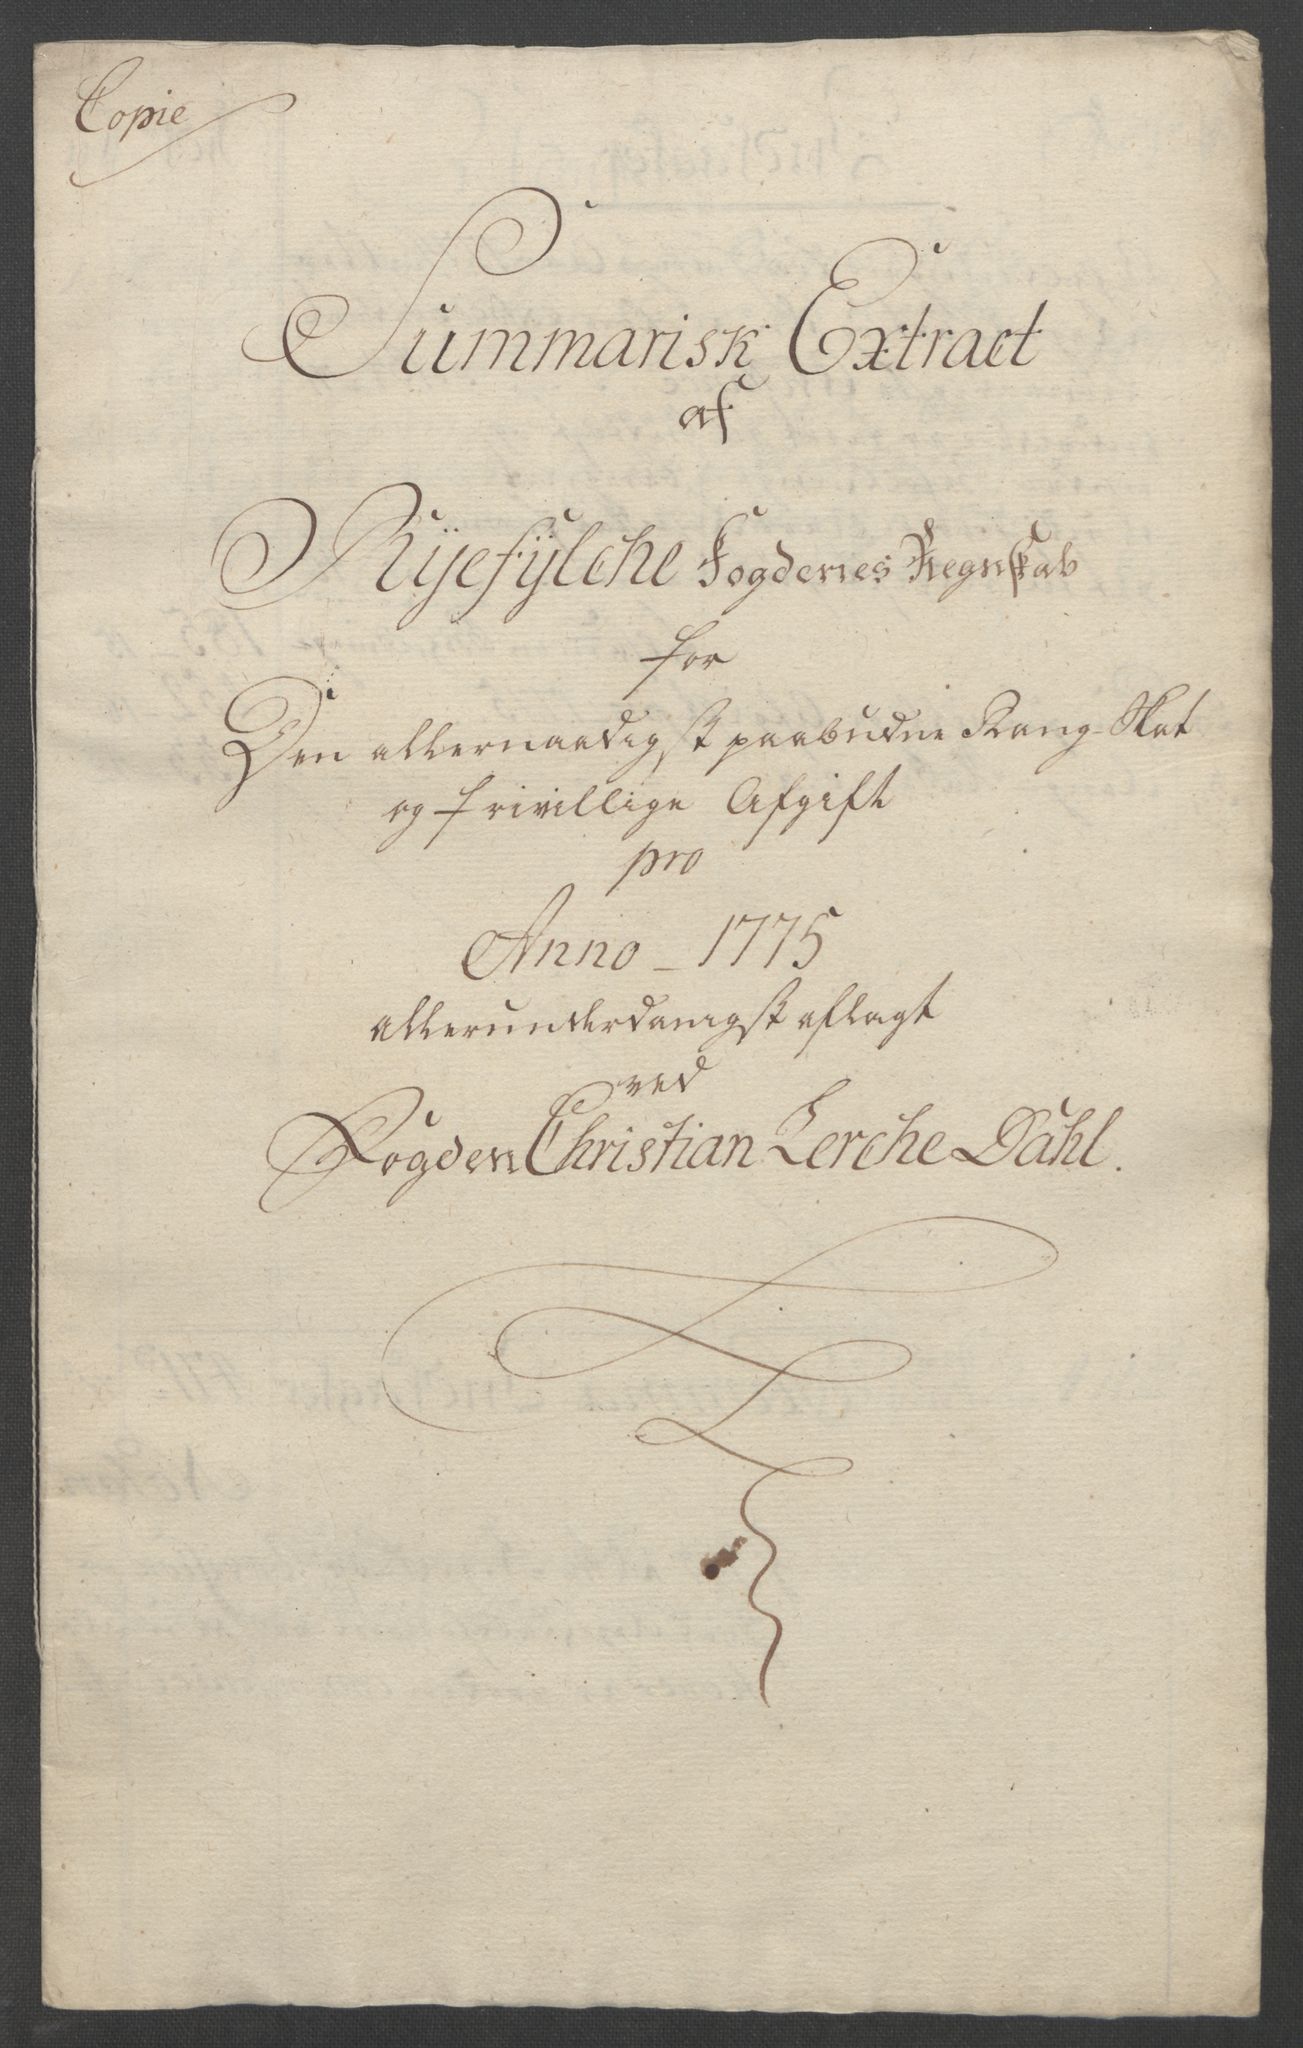 Copie
Summarisk Extract
af
Ryefylche Fogderies Regnskab
for
Den allernaadigst paabudne Rang-Skat
og frivillige Afgift
pro
Anno - 1775
allerunderdanigst aflagt
ved
Fogden Christian Lerche Dahl.